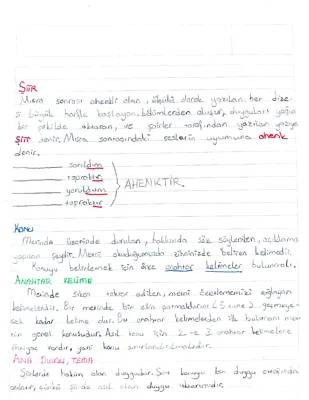 ŞİİR
Mısra sonrası ahenkli olan, ölçülü olarak yazılan her dize-
si büyük harfle başlayan bölümlerden oluşur, duyguları yoğun
bir şekilde aktaran, ve şairler tarafından yazılan yazıya
ŞİİR denir. Mısra sonrasındaki seslerin uyumuna ahenk
denir.
sarıldım
topraktır
yoruldum
topraktır
AHENKTİR.
KONU
Metinde üzerinde durulan, hakkında söz söylenen, açıklama
yapılan şeydir. Metni okuduğumuzda zihnimizde beliren kelimedir.
Konuyu belirlemek için önce anahtar kelimeler bulunmalı.
ANAHTAR KELİME
Metinde sıkça tekrar edilen, metni özetlememizi sağlayan
kelimelerdir. Bir metinde bir elin parmaklarını (5 tane) geçmeye-
cek kadar kelime olur. Bu anahtar kelimelerden ilk bulunanı met-
nin genel konusudur. Asıl konu için 2 ve 3. anahtar kelimelere
ihtiyaç vardır, yani konu sınırlandırılmalıdır.
ANA DUYGU, TEMA
Şiirlerde hakim olan duygudur. Şiir konuyu bir duygu etrafında
anlatır, çünkü şiirde asıl olan duygu aktarımıdır.